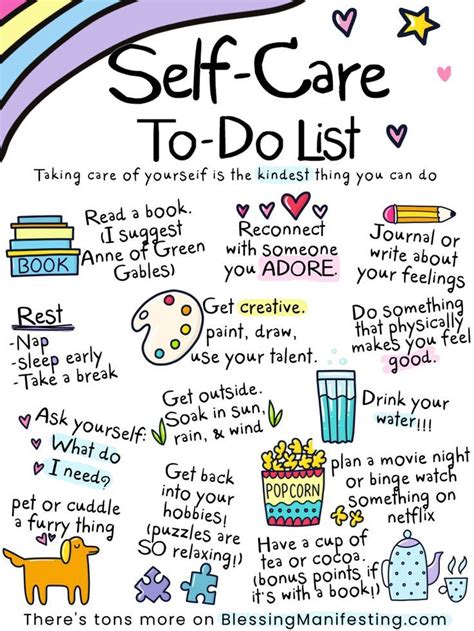 Self-Care
To-Do List
Taking care of yourself is the kindest thing you can do
Read a book.
(I suggest
Anne of Green
Gables)
BOOK
Reconnect
with someone
you ADORE.
Journal or
write about
your feelings
Rest
-Nap
-sleep early
-Take a break
Get creative.
paint, draw,
use your talent.
Do something
that physically
makes you feel
good.
Ask yourself:
What do
I need?
Get outside.
Soak in sun,
rain, & wind
Drink your
water!!!
pet or cuddle
a furry thing
Get back
into your
hobbies!
(puzzles are
SO relaxing!)
POPCORN
plan a movie night
or binge watch
something on
netflix
Have a cup of
tea or cocoa.
(bonus points if
it's with a book!)
There's tons more on BlessingManifesting.com